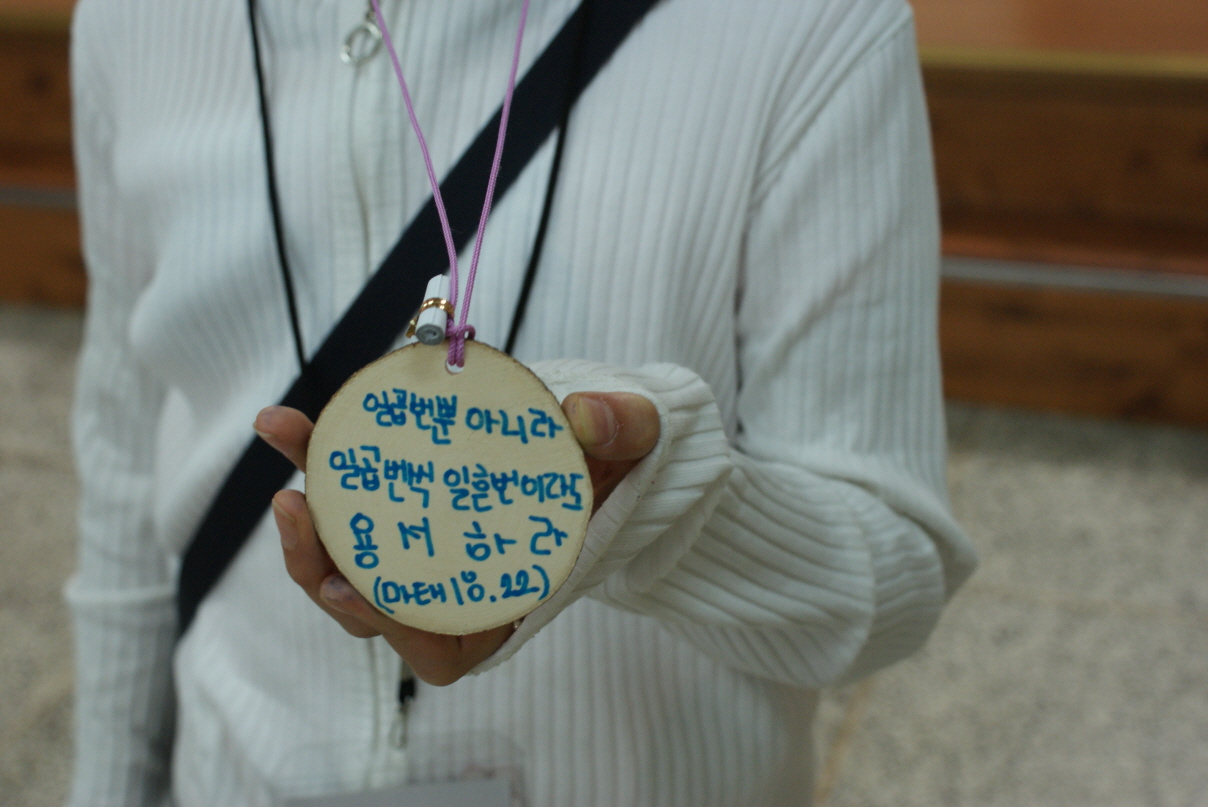 일곱번뿐 아니라
일곱벤씩 일흔번이라도
용서하라
(마태18.22)